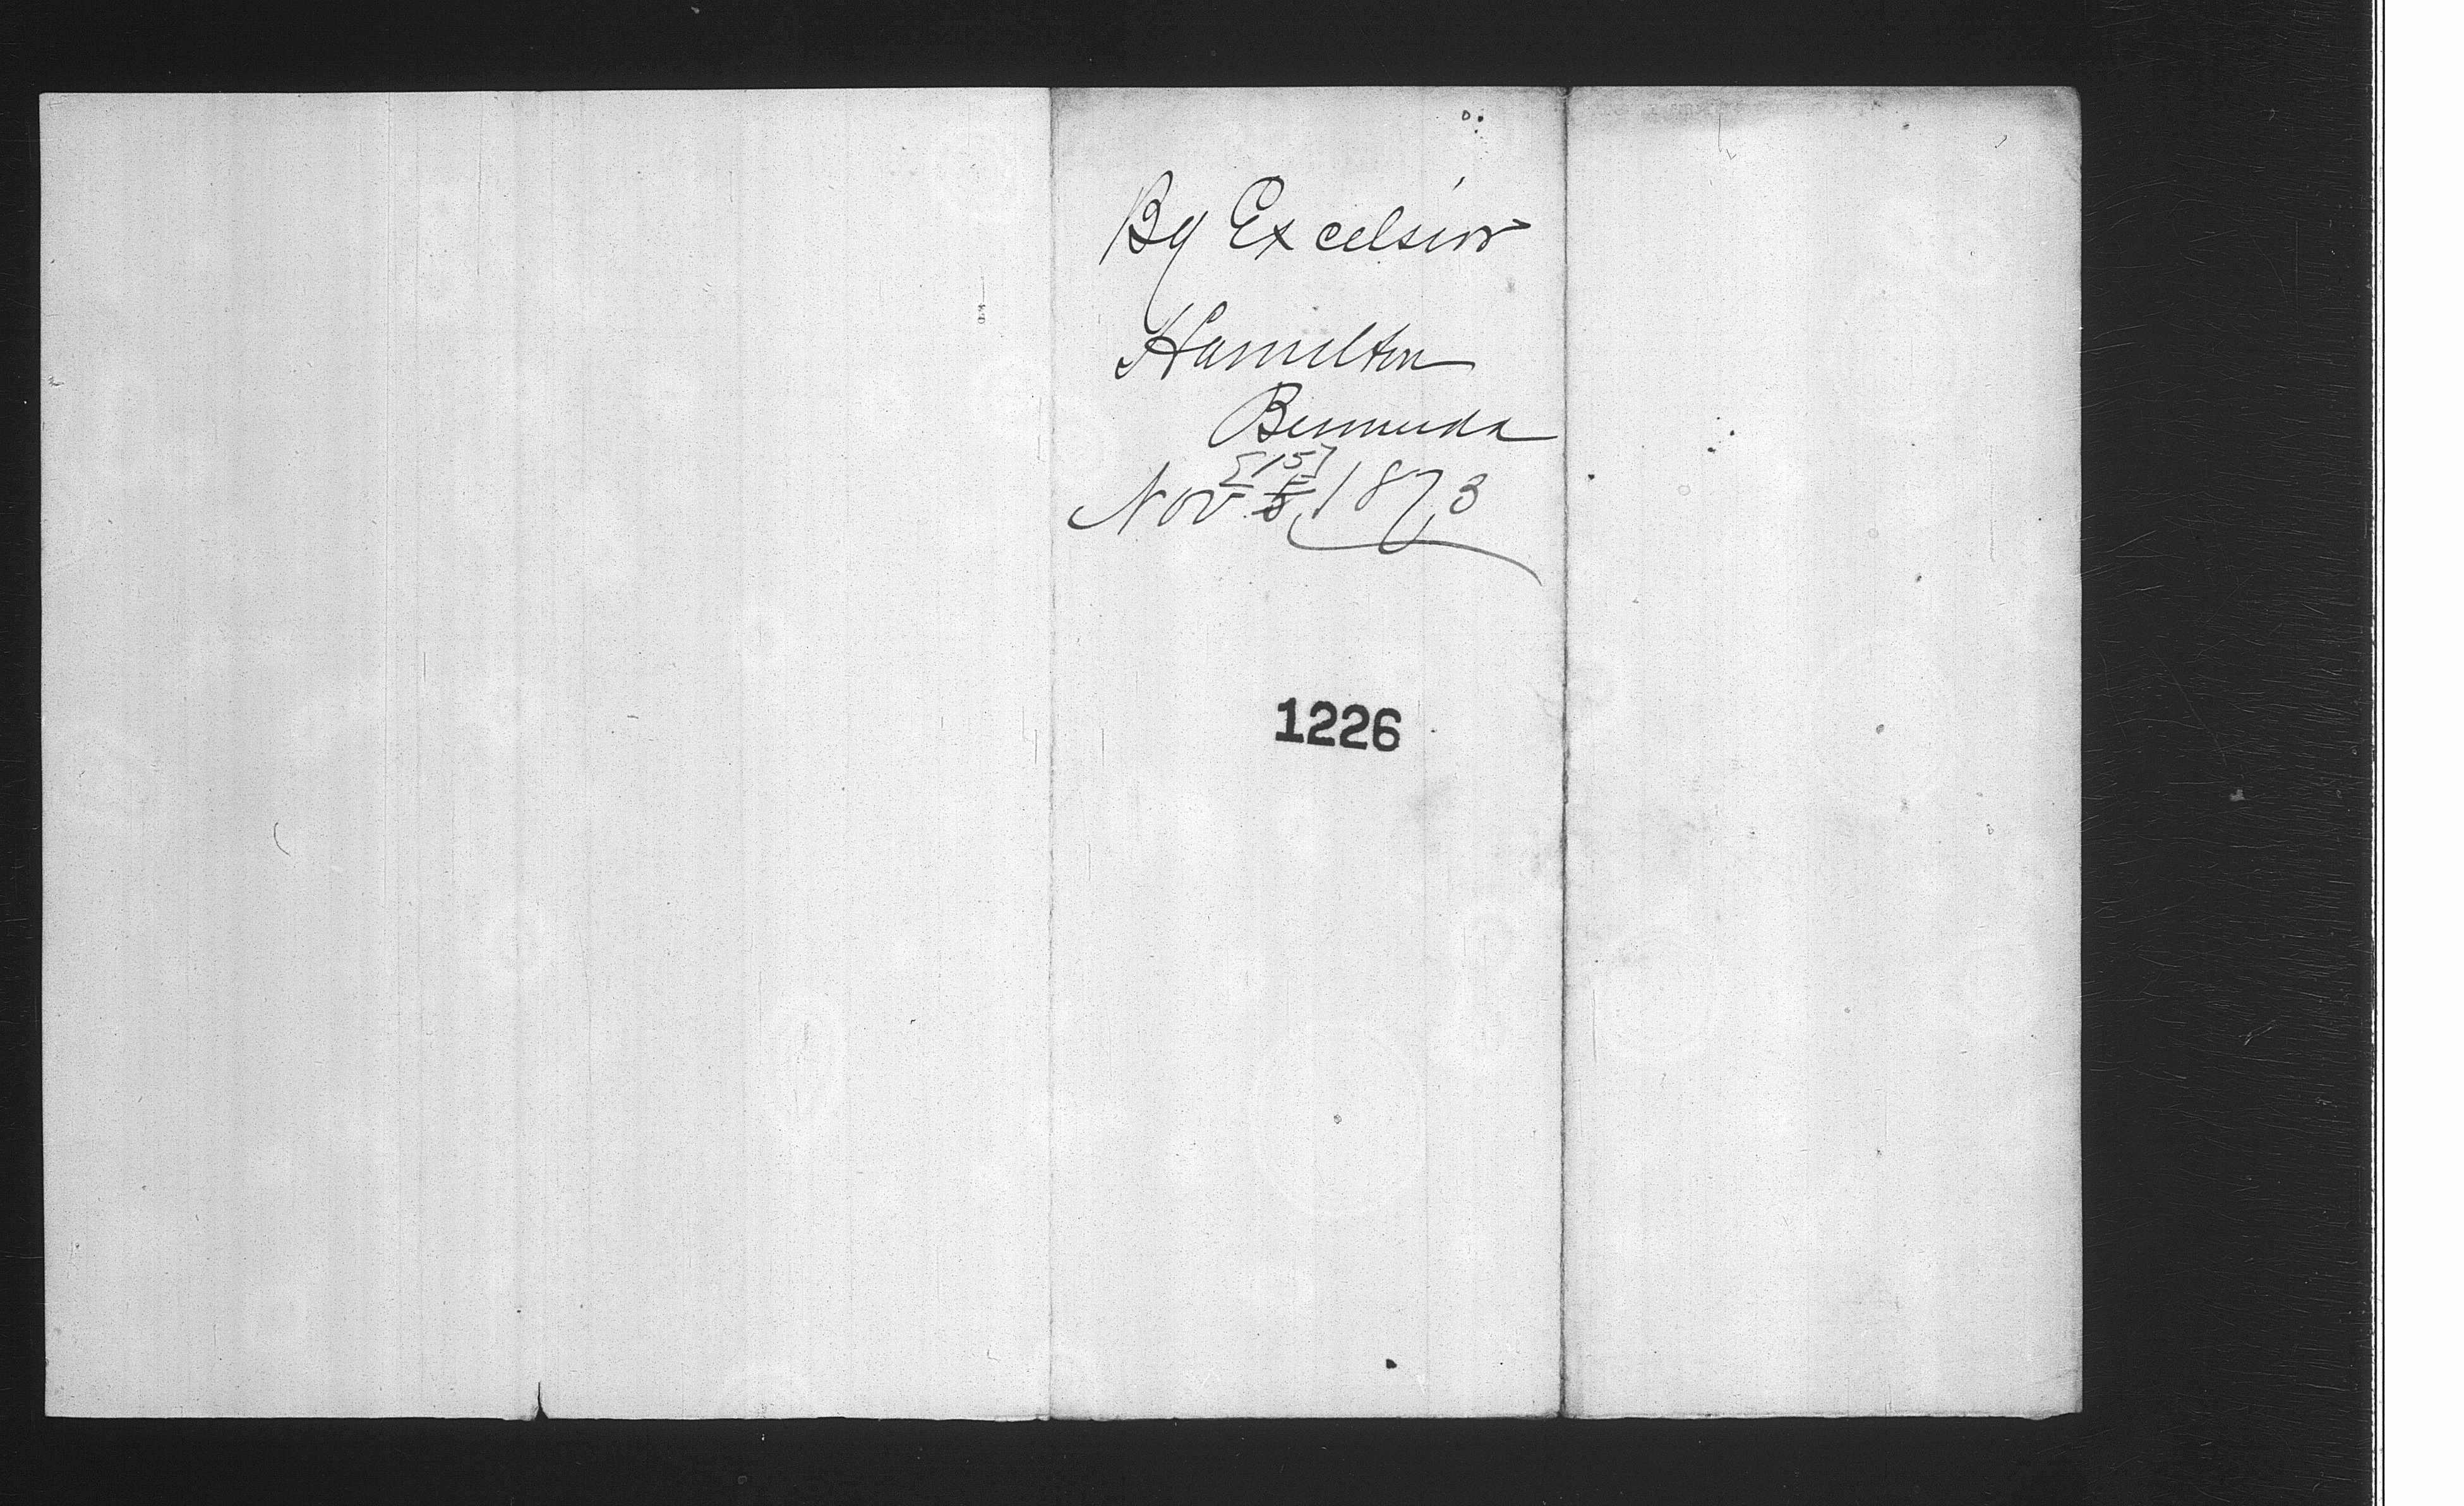 By Excelsior
Hamilton
Bermuda
[15]
Nov 5, 1873
1226